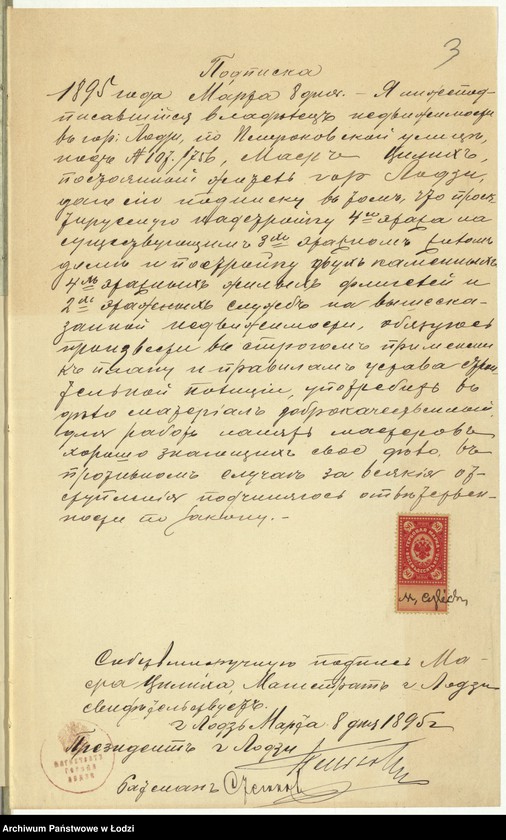 3
Подписка
1895 года Марта 8 дня. – Я нижепод-
писавшійся владѣлецъ недвижимости
въ гор: Лодзи, по Петроковской улицѣ,
подъ № 107/756, Маеръ Цилихъ,
постоянный житель гор Лодзи,
даю сію подписку въ томъ, что проек-
тируемую надстройку 4го этажа на
существующемъ 3хъ этажномъ
домѣ и постройку двухъ каменныхъ
4хъ этажныхъ жилыхъ флигелей и
2хъ этажныхъ службъ на вышеска-
занной недвижимости, обязуюсь
произвести въ строгомъ примѣненіи
къ плану и правиламъ устава строи-
тельной полиціи, употребить въ
дѣло матеріалъ доброкачественный,
для работъ нанять мастеровъ
хорошо знающихъ своё дѣло, въ
противномъ случаѣ за всякія от-
ступленія подчиняюсь отвѣтствен-
ности по закону. –
Собственноручную подпись Ма-
ера Цилиха, Магистратъ г. Лодзи
свидѣтельствуетъ.
г. Лодзь Марта 8 дня 1895 г
Президентъ г Лодзи
МАГИСТРАТЪ
ГОРОДА
ЛОДЗИ
Archiwum Państwowe w Łodzi